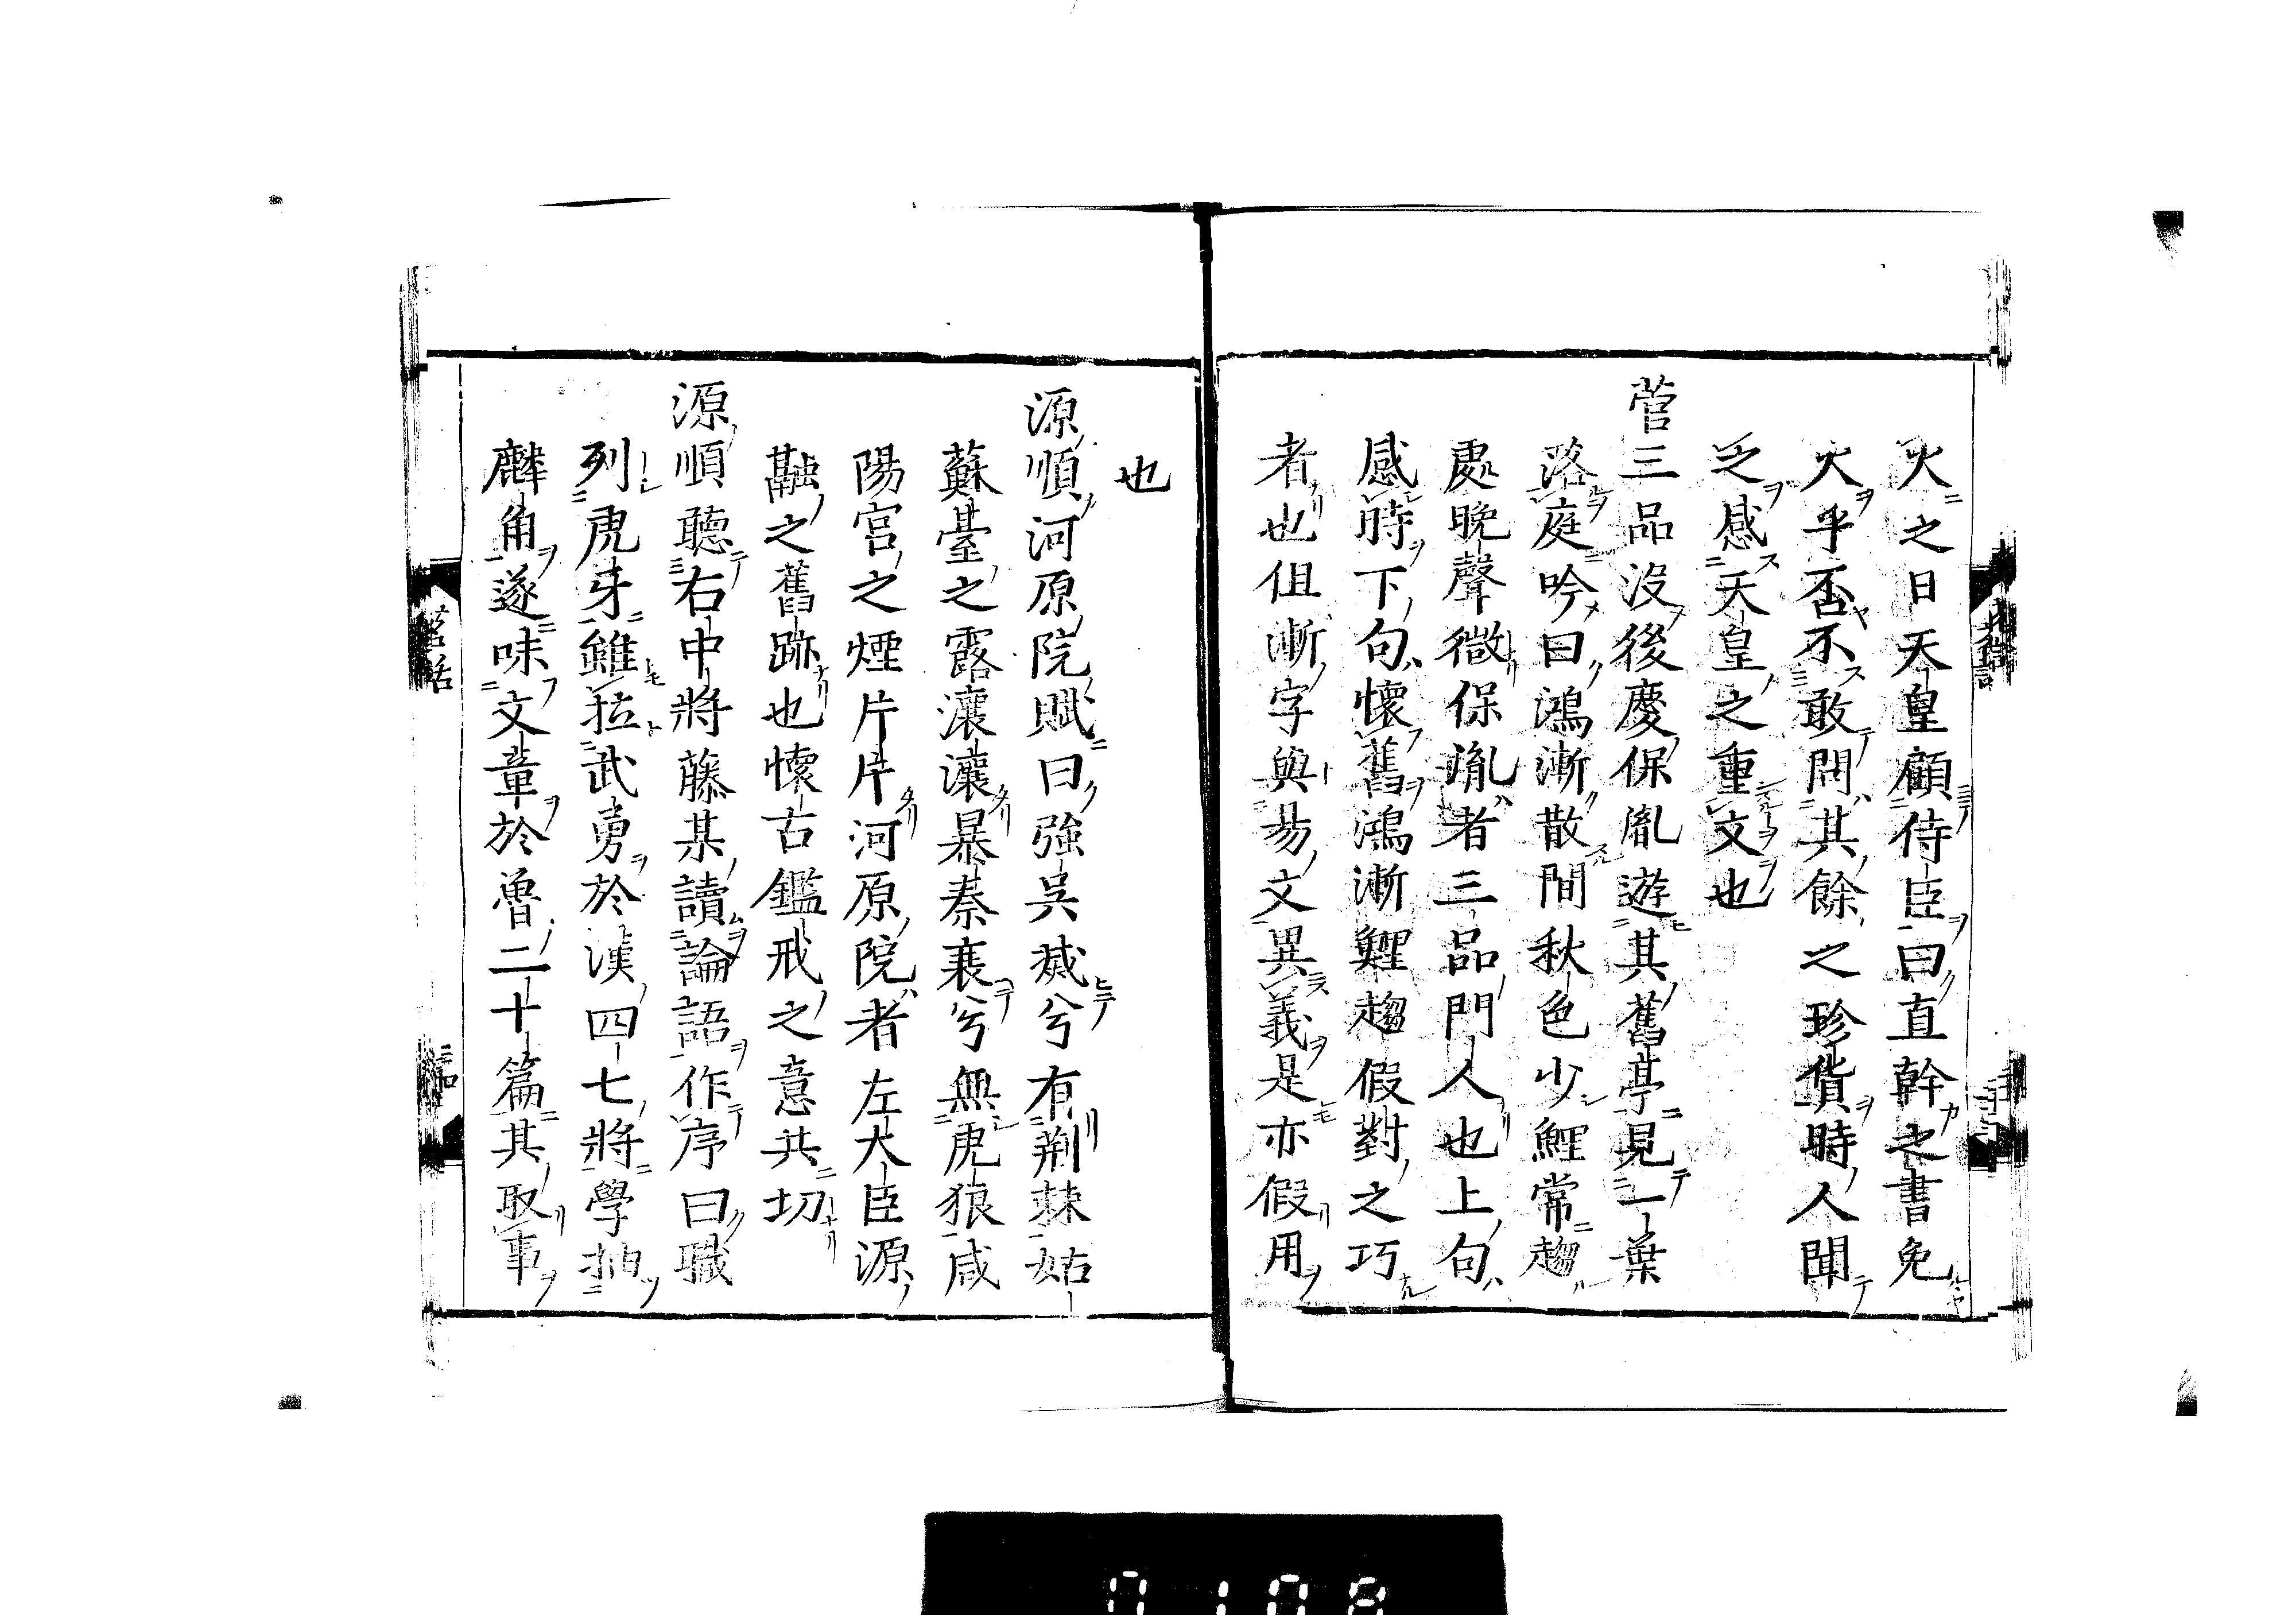 火之日天皇顧侍臣曰直幹之書免
火乎否不敢問其餘之珍貨時人聞
之感天皇之重文也
菅三品沒後慶保胤遊其舊亭見一葉
落庭吟曰鴻漸散間秋色少鯉常趨
處晚聲微保胤者三品門人也上句
感時下句懷舊鴻漸鯉趨假對之巧
者也但漸字與易文異義是亦假用
也
源順河原院賦曰強吳滅兮有荊棘姑
蘇臺之露瀼瀼暴秦衰兮無虎狼咸
陽宮之煙片片河原院者左大臣源
融之舊跡也懷古鑑戒之意共切
源順聽右中將藤某讀論語作序曰職
列虎牙雖拉武勇於漢四七將學抽
麟角遂味文章於魯二十篇其取事
茗話
0108